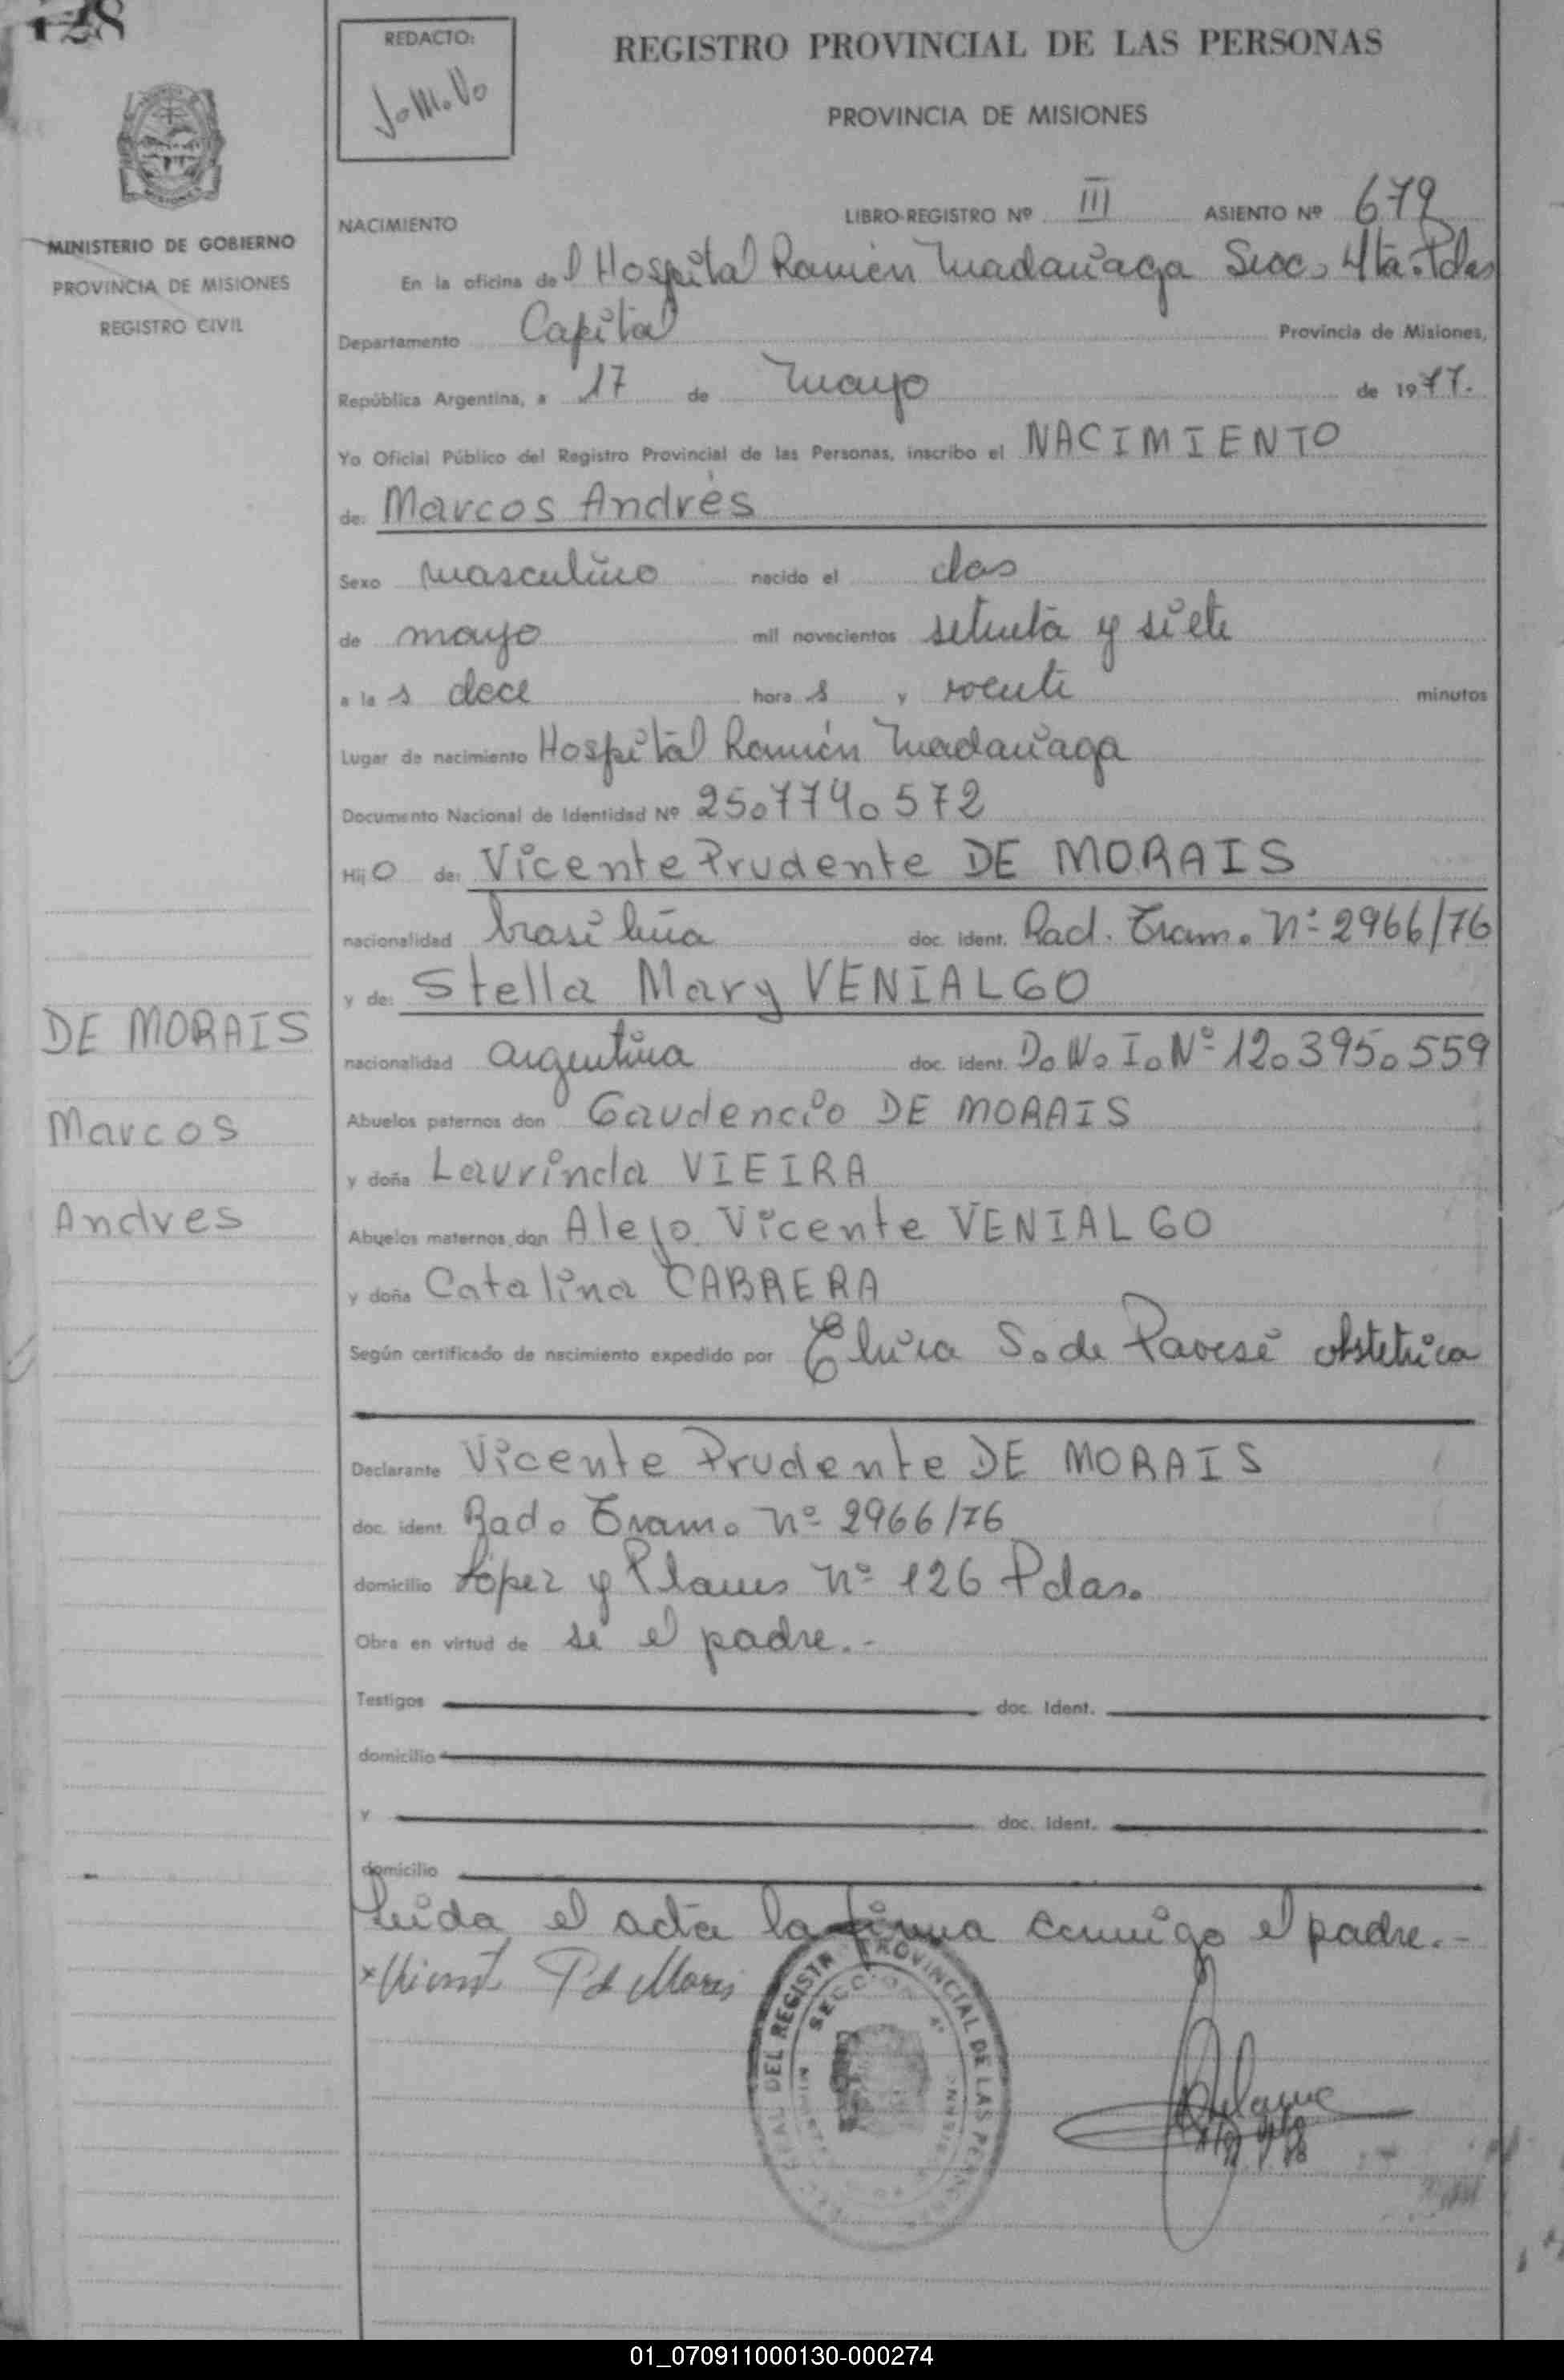 128
REDACTO:
JoMoVo
REGISTRO PROVINCIAL DE LAS PERSONAS
PROVINCIA DE MISIONES
MINISTERIO DE GOBIERNO
PROVINCIA DE MISIONES
REGISTRO CIVIL
NACIMIENTO LIBRO-REGISTRO Nº III ASIENTO Nº 679
En la oficina del Hospital Ramón Madariaga Secc. 4ta. Pdas
Departamento Capital Provincia de Misiones,
República Argentina, a 17 de mayo de 1977.
Yo Oficial Público del Registro Provincial de las Personas, inscribo el NACIMIENTO
de: Marcos Andrés
Sexo masculino nacido el dos
de mayo mil novecientos setenta y siete
a las doce horas y veinte minutos
Lugar de nacimiento Hospital Ramón Madariaga
Documento Nacional de Identidad Nº 25.774.572
Hijo de: Vicente Prudente DE MORAIS
nacionalidad brasileña doc. ident. Rad. Tram. Nº 2966/76
y de: Stella Mary VENIALGO
nacionalidad argentina doc. ident. D.N.I. Nº 12.395.559
Abuelos paternos don Gaudencio DE MORAIS
y doña Laurinda VIEIRA
Abuelos maternos don Alejo Vicente VENIALGO
y doña Catalina CABRERA
Según certificado de nacimiento expedido por Elvira S. de Pavesi obstetrica
Declarante Vicente Prudente DE MORAIS
doc. ident. Rad. Tram. Nº 2966/76
domicilio López y Planes Nº 126 Pdas.
Obra en virtud de se el padre.-
Testigos doc. Ident.
domicilio
y doc. Ident.
domicilio
Leida el acta la firma conmigo el padre.-
x Vicente P d Morais
DE MORAIS
Marcos
Andres
DEL REGISTR PROVINCIAL DE LAS PE
SECCION 4ª
01_070911000130-000274